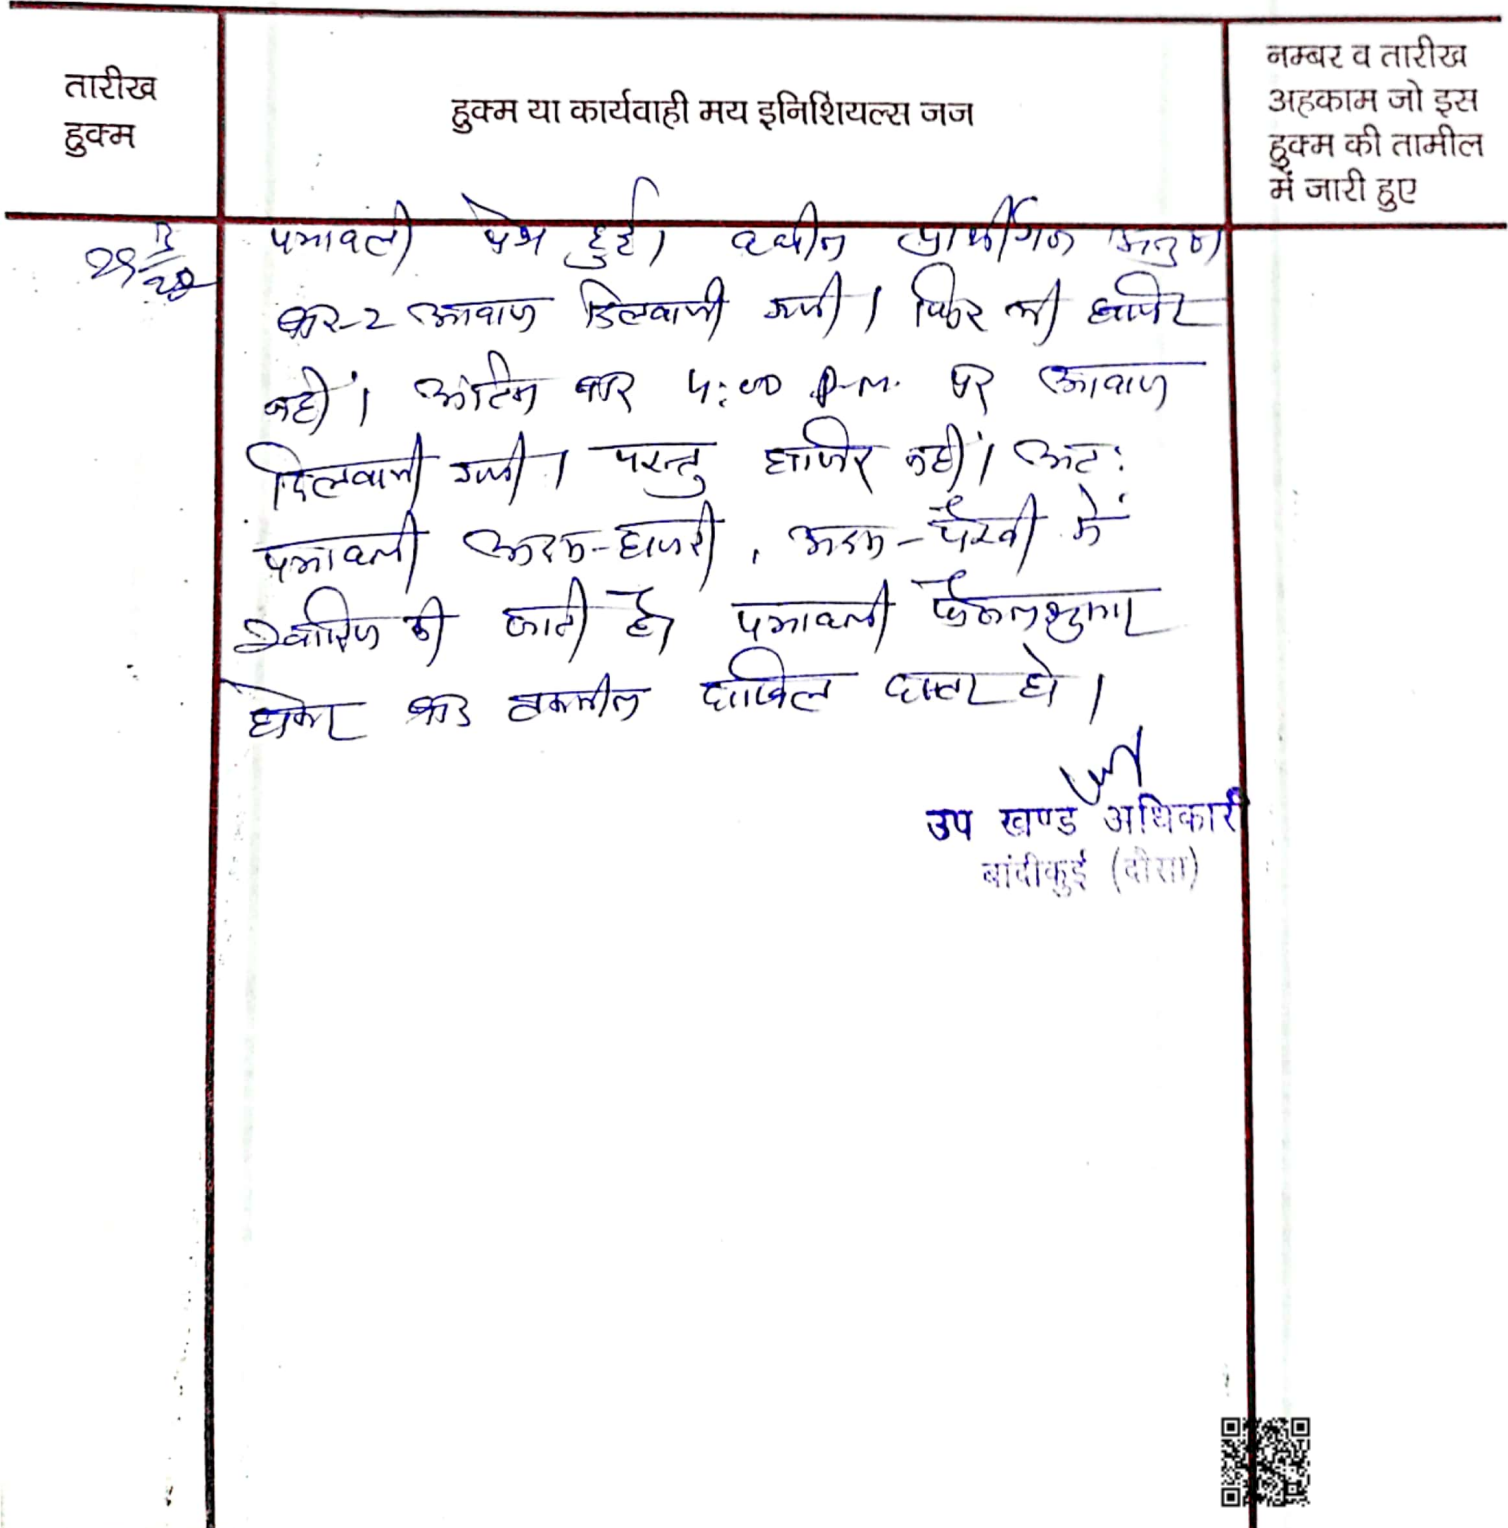 तारीख
हुक्म
हुक्म या कार्यवाही मय इनिशियल्स जज
नम्बर व तारीख
अहकाम जो इस
हुक्म की तामील
में जारी हुए
पत्रावली पेश हुई। वकील प्रार्थीगण
बार-2 आवाज दिलवायी गयी। फिर भी हाजिर
नहीं। अंतिम बार 4:00 P.M. पर आवाज
दिलवायी गयी। परन्तु हाजिर नहीं। अतः
पत्रावली अदम-हाजरी, अदम-पैरवी में
खारिज की जाती है। पत्रावली फैसलशुमार
होकर बाद तकमील दाखिल दफ्तर हो।
उप खण्ड अधिकारी
बांदीकुई (दौसा)